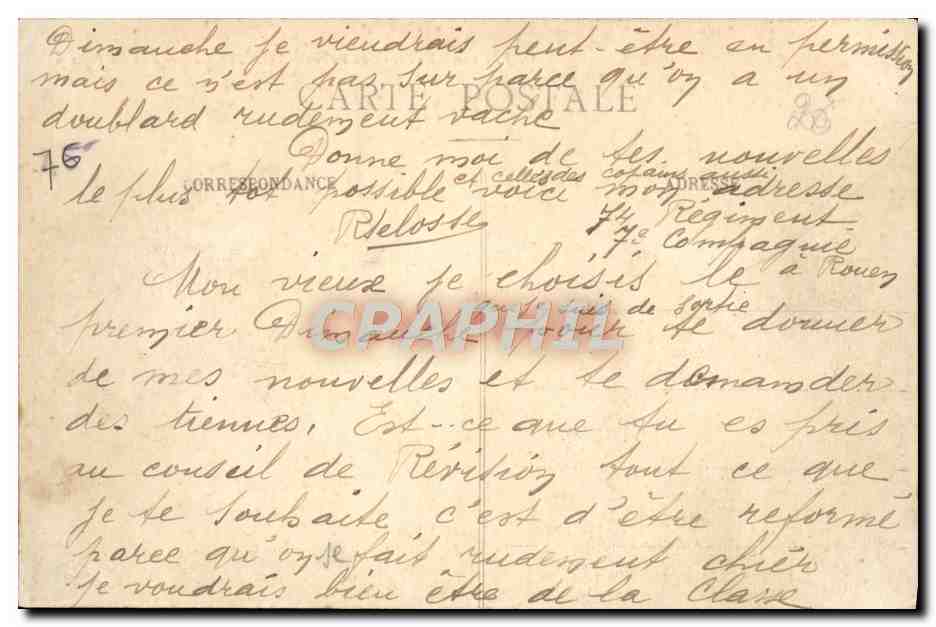 Dimanche je viendrais peut-être en permission
mais ce n'est pas sur parce qu'on a un
CARTE POSTALE
doublard rudement vache
28
76
Donne moi de tes nouvelles
et celles des copains aussi
CORRESPONDANCE
ADRESSE
le plus tot possible voici mon adresse
R Delosse
74 Régiment
7e Compagnie
à Rouen
Mon vieux je choisis le
que je suis de sortie
premier Dimanche pour te donner
CPAPHIL
de mes nouvelles et te demander
des tiennes. Est-ce que tu es pris
au conseil de Révision tout ce que
je te souhaite c'est d'être reformé
parce qu'on se fait rudement chier
je voudrais bien être de la Classe